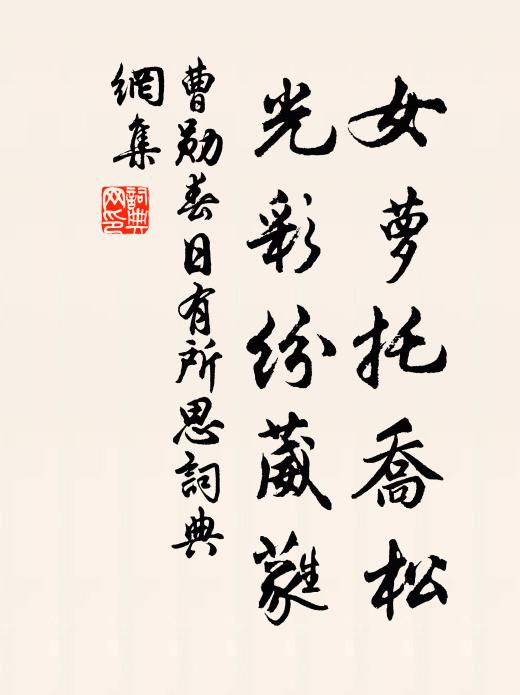 女萝托喬松
光彩纷葳蕤
曹勋春日有所思詞典
網集
詞典
网印